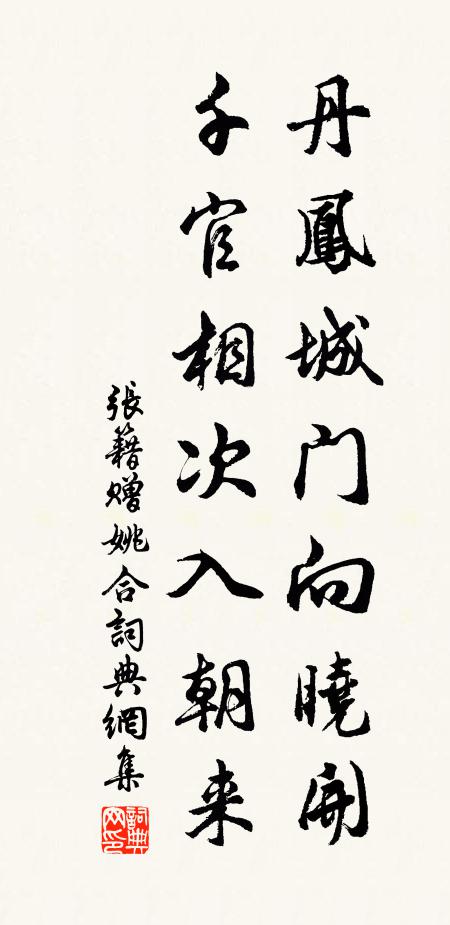 丹鳳城门向曉開
千官相次入朝来
張籍赠姚合詞典網集
詞典网印